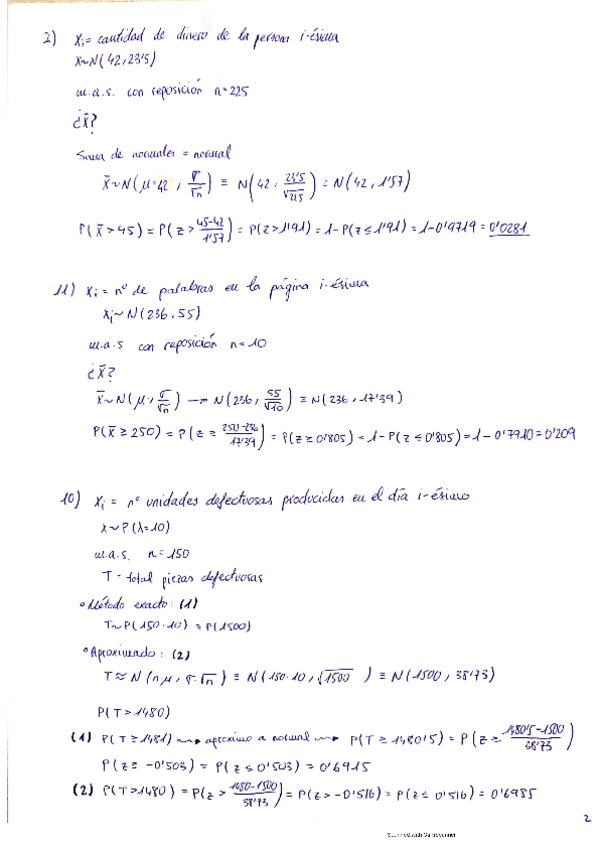 2) Xi = cantidad de dinero de la persona i-ésima
X~N(42, 23'5)
m.a.s. con reposición n=225
¿X̄?
Suma de normales = normal
X̄~N(μ=42, σ/√n) ≡ N(42, 23'5/√225) ≡ N(42, 1'57)
P(X̄>45) = P(Z> 45-42/1'57) = P(Z>1'91) = 1-P(Z≤1'91) = 1-0'9719 = 0'0281
11) Xi = nº de palabras en la página i-ésima
Xi~N(236, 55)
m.a.s con reposición n=10
¿X̄?
X̄~N(μ, σ/√n) → N(236, 55/√10) ≡ N(236, 17'39)
P(X̄≥250) = P(Z≥ 250-236/17'39) = P(Z≥0'805) = 1-P(Z≤0'805) = 1-0'7910 = 0'209
10) Xi = nº unidades defectuosas producidas en el día i-ésimo
X~P(λ=10)
m.a.s. n=150
T = total piezas defectuosas
• Método exacto: (1)
T~P(150·10) ≡ P(1500)
• Aproximado: (2)
T≈N(nμ, σ·√n) ≡ N(150·10, √1500) ≡ N(1500, 38'73)
P(T>1480)
(1) P(T≥1481) → aproximo a normal → P(T≥1480'5) = P(Z≥ 1480'5-1500/38'73)
P(Z≥-0'503) = P(Z≤0'503) = 0'6915
(2) P(T>1480) = P(Z> 1480-1500/38'73) = P(Z>-0'516) = P(Z≤0'516) = 0'6985
2